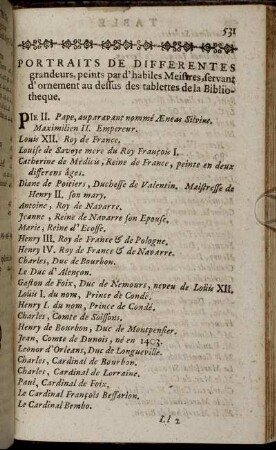 531
PORTRAITS DE DIFFERENTES
grandeurs, peints par d'habiles Meistres, servant
d'ornement au dessus des tablettes de la Biblio-
theque.
PIE II. Pape, auparavant nommé Æneas Silvius.
Maximilien II. Empereur.
Louis XII. Roy de France.
Louise de Savoye mere du Roy François I.
Catherine de Médicis, Reine de France, peinte en deux
differens âges.
Diane de Poitiers, Duchesse de Valentin. Maistresse de
Henry II. son mary.
Antoine, Roy de Navarre.
Jeanne, Reine de Navarre son Epouse.
Marie, Reine d'Ecosse.
Henry III. Roy de France & de Pologne.
Henry IV. Roy de France & de Navarre.
Charles, Duc de Bourbon.
Le Duc d'Alençon.
Gaston de Foix, Duc de Nemours, neveu de Loüis XII.
Loüis I. du nom, Prince de Condé.
Henry I. du nom, Prince de Condé.
Charles, Comte de Soissons.
Henry de Bourbon, Duc de Montpensier.
Jean, Comte de Dunois, né en 1403.
Leonor d'Orleans, Duc de Longueville.
Charles, Cardinal de Bourbon.
Charles, Cardinal de Lorraine.
Paul, Cardinal de Foix.
Le Cardinal François Bessarion.
Le Cardinal Bembo.
Ll 2